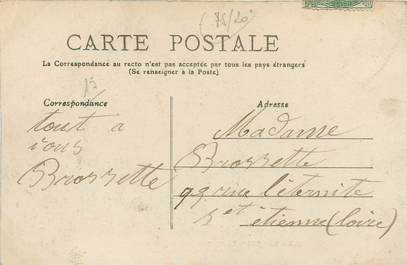 (75/20)
CARTE POSTALE
La Correspondance au recto n'est pas acceptée par tous les pays étrangers
(Se renseigner à la Poste)
15
Correspondance
tout a
vous
Brossette
Adresse
Madame
Brossette
99 rue l'éternite
st étienne (loire)